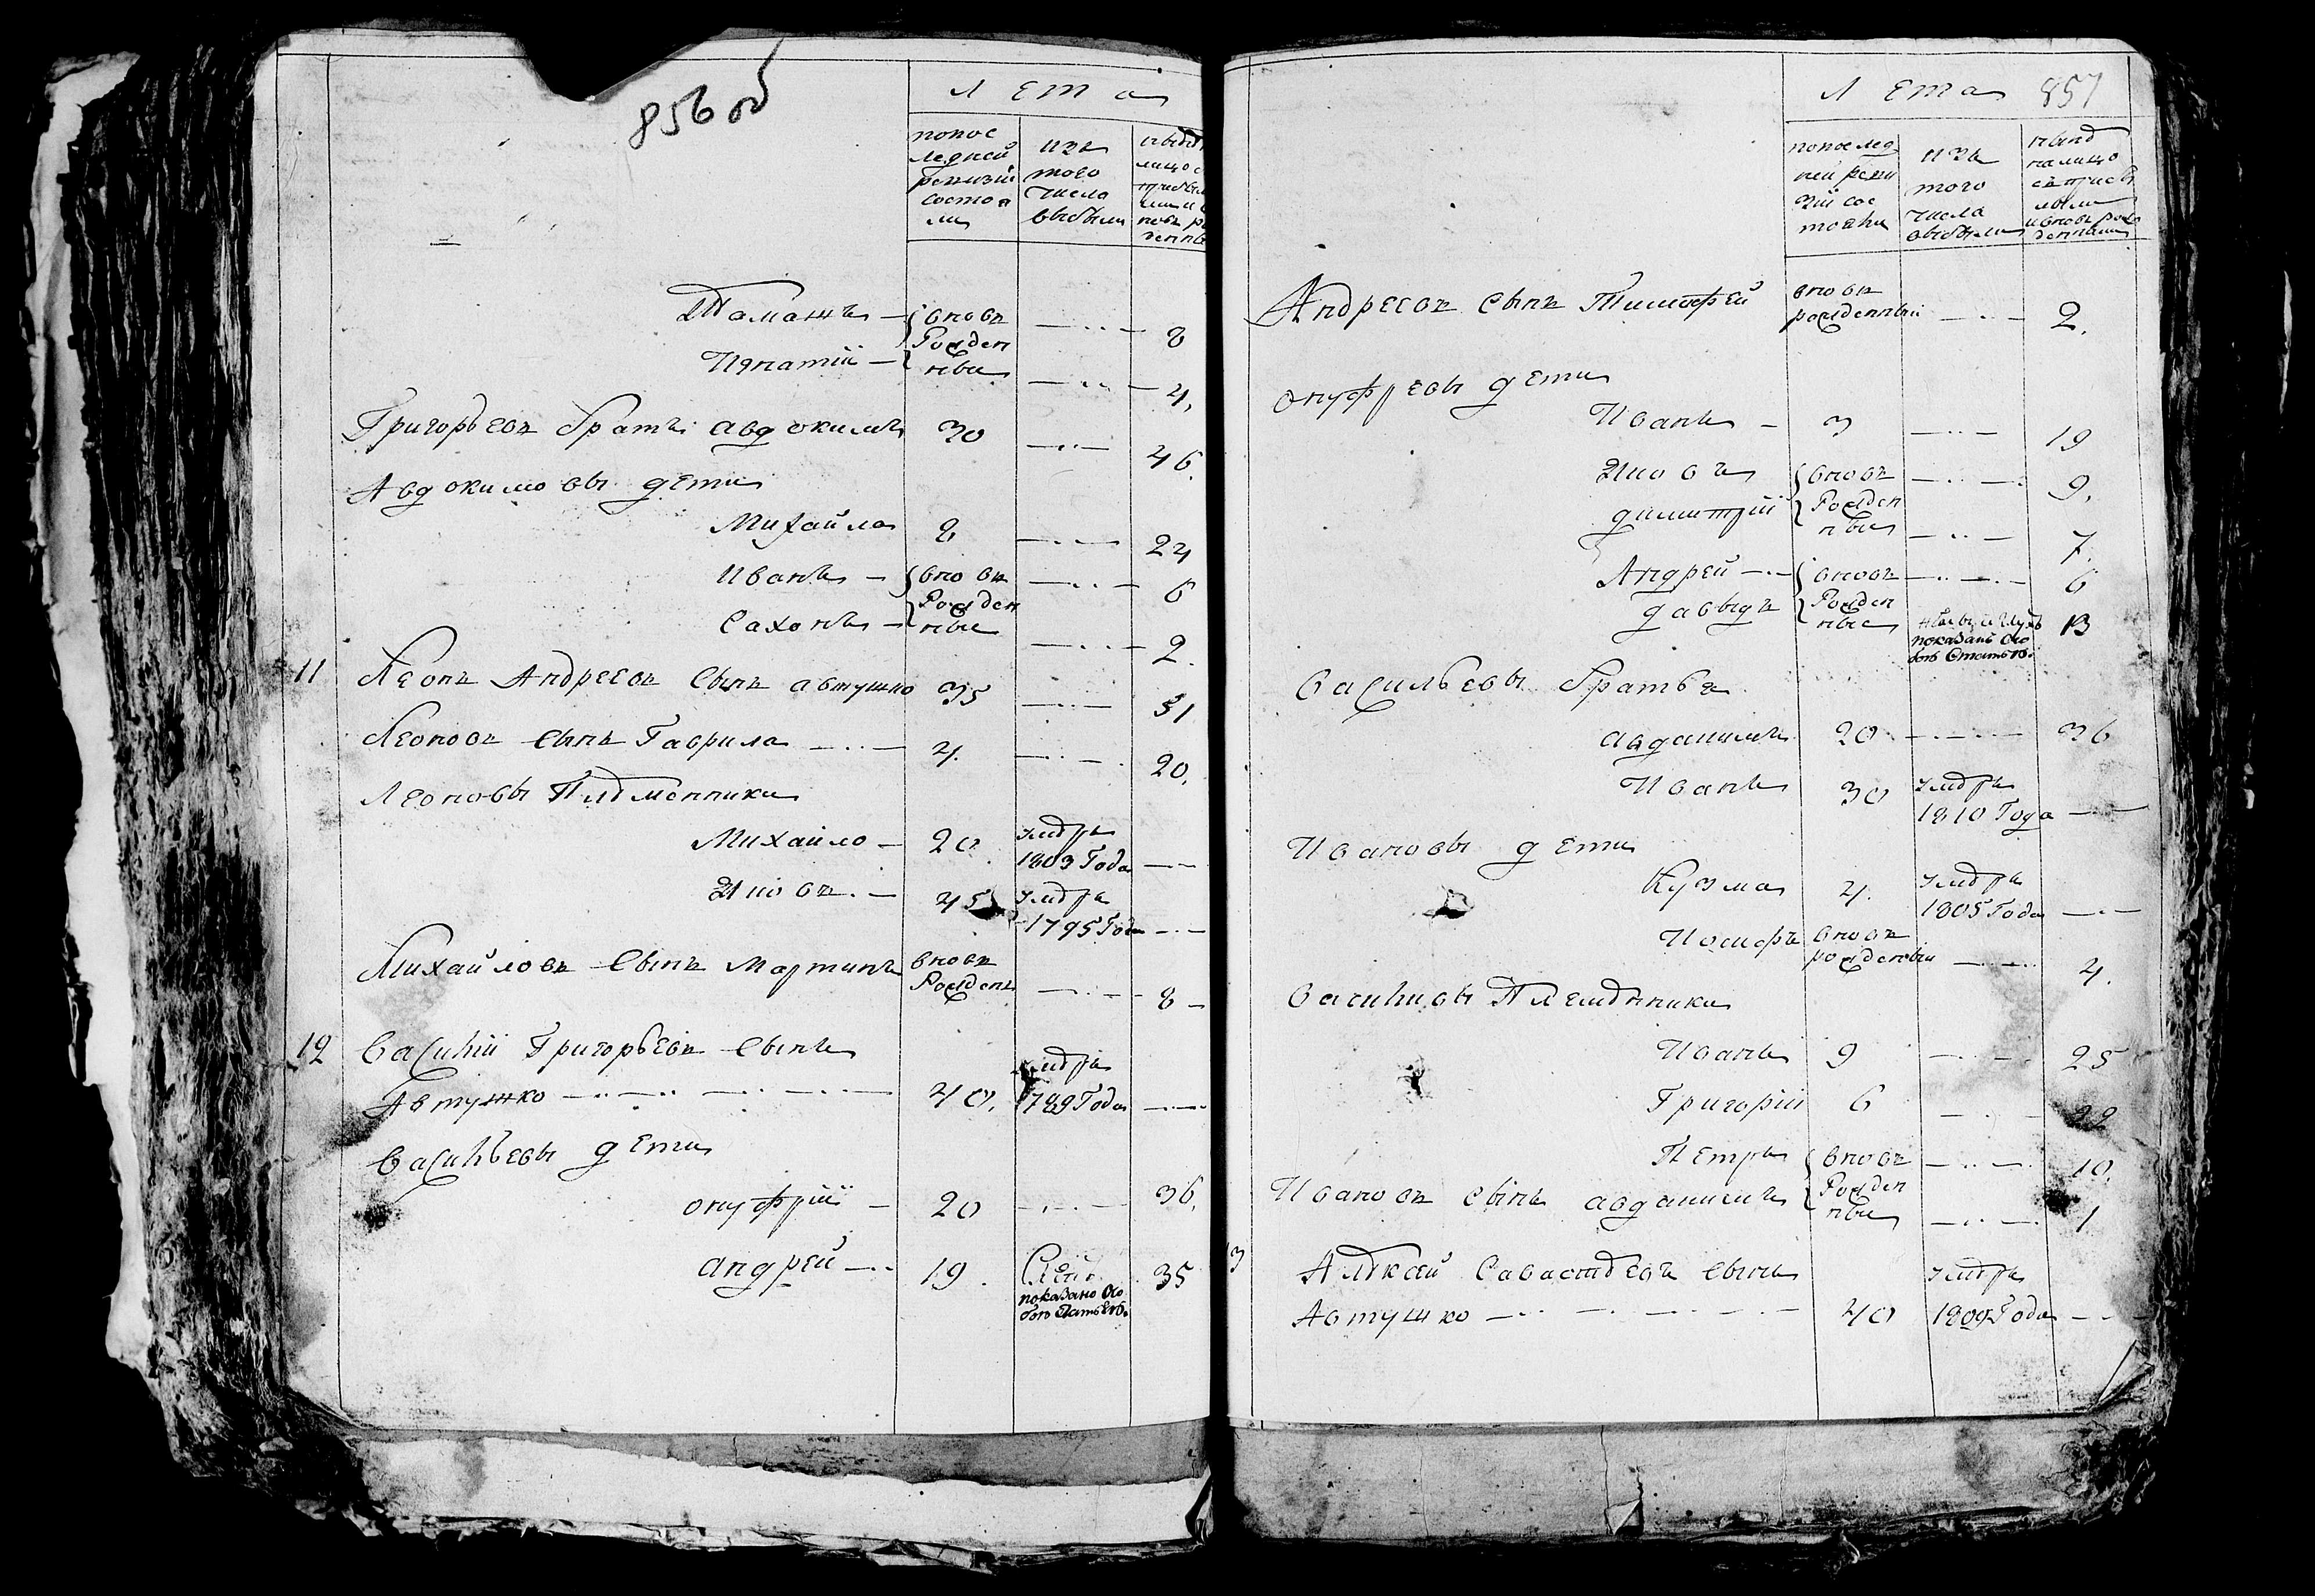 856 об
Лета
попос
ледней
ревизіи
состоя
ли
изъ
того
числа
выбыли
Тамашъ — вновь — 8
Рожден
Игнатій — ные — 4.
Григорьевъ братъ Авдокимъ 30 — 46.
Авдокимовы дети
Михайла 8 — 24
Иванъ — вновь — 6
Рожден
Сахонъ — ные — 2.
11 Леонъ Андреевъ сынъ Автушко 35 — 51
Леоновъ сынъ Гаврила — 4. — 20.
Леоновы Племенники
Михайло — 20 умръ
1803 Года —
Яковъ. — 45 умръ
1795 Года —
Михайловъ сынъ Мартинъ вновь
Рожденъ — 8 —
12 Василій Григорьевъ сынъ умръ
Автушко — 40. 1789 Года —
Васильевы дети
Онуфрій — 20 — 36.
Андрей — 19. 35
показано осо
бою статьею.
857
Лета
попослед
ней реви
зіи сос
тояли
изъ
того
числа
выбыли
ныне
налицо
съ прибы
лыми
и вновь рож
денными
Андреевъ сынъ Тимофей вновь
рожденный — 2.
Онуфревы дети
Иванъ — 3 — 19
Яковъ вновь — 9.
Димитрій Рожден
ные — 7.
Андрей — вновь — 6
Давыдъ Рожден
ные 13
показанъ осо
бою статьею.
Васильевы братья
Авдакимъ 20 — 36
Иванъ 30 умръ
1810 Года —
Ивановы дети
Кузма 4. умръ
1805 Года —
Иосифъ вновь
рожденный — 4.
Васильевы Племянники
Иванъ 9 — 25
Григорій 6 — 22
Петръ вновь — 10.
Ивановъ сынъ Авдакимъ Рожден
ные — 1
13 Аляксей Савастяевъ сынъ умръ
Автушко — 40 1809 Года —